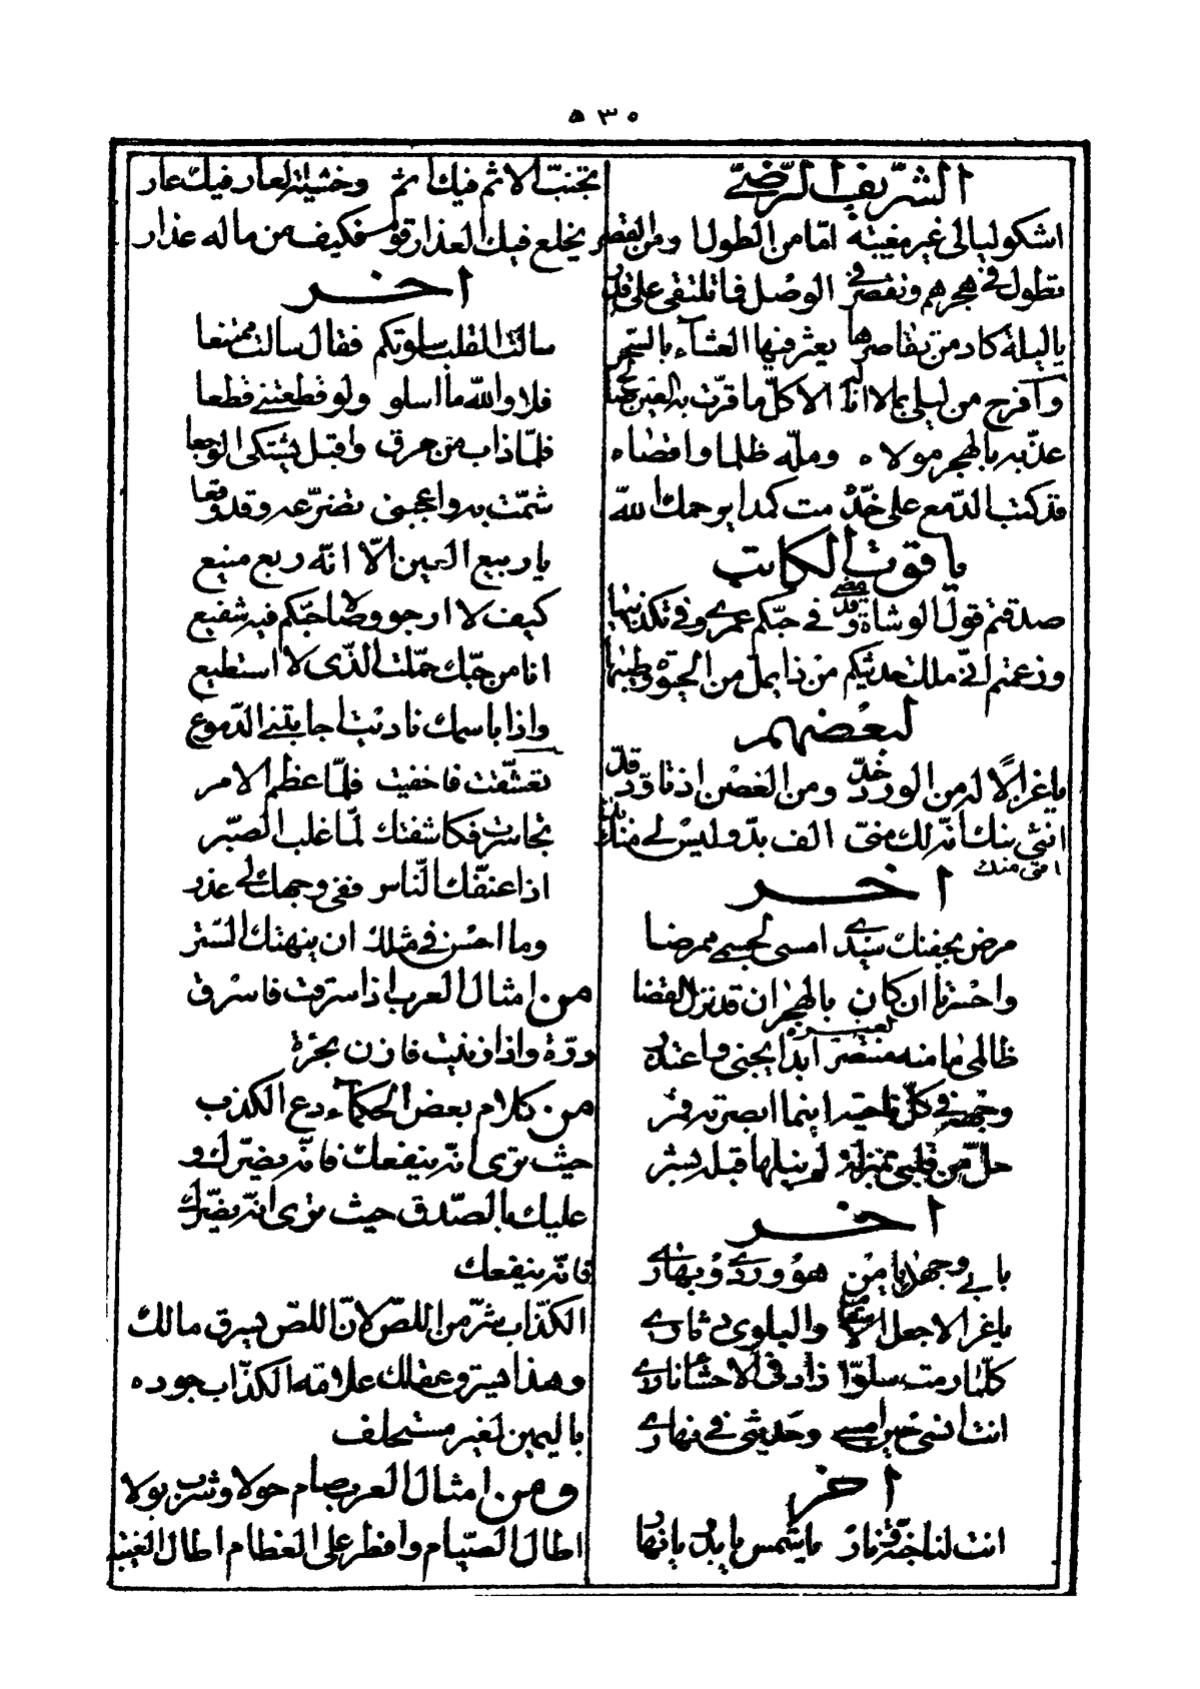 ٥٣٠
الشريف الرّضيّ
اشكو ليالى غير مغيبته امّا من الطول او من القصر
تطول فى هجرهم وتقصر فى الوصل فما تلتقى على قدر
يا ليلة كاد من تقاصرها يعثر فيها العشآء بالسّحر
عذّبه بالهجر مولاه وملّه ظلما واقصاه
قد كتب الدّمع على خدّه مت كمدا يرحمك اللّه
ياقوت الكاتب
صدقتم قول الوشاة وقد مضى فى حبّكم عمرى وفى تكذيبها
وزعمتم انّى مللت حديثكم من ذا يملّ من الحيوة وطيبها
لبعضهم
يا غزالا له من الورد خدّ ومن الغصن اذ تاوّد قدّ
الف بدّ وليس لى منك
آخر
مرض بجفنك سيّدى امسى لجسمى ممرضا
واحسرتا ان كان بالهجران قد نزل القضا
لغيره
ظالمى ما منه منتصر ابدا يجنى واعتذر
وجهه فى كلّ ناحية اينما ابصرته قمر
حلّ من قلبى بمنزلة لم ينلها قبله بشر
آخر
بابى وجهك يا من هو وردى وبهارى
يا غزالا جعل والبلوى دثارى
كلّما رمت سلوّا زاد فى الاحشاء نارى
انت انسى حين امسى وحديثى فى نهارى
آخر
انت لنا جنّة ونار يا شمس يا بدر يا نهار
تجنّب الاثم فيك اثم وخشية العار فيك عار
يخلع فيك العذار قوم فكيف من ماله عذار
آخر
سالت القلب سلوتكم فقال سالت ممتنعا
فلا واللّه ما اسلو ولو قطعتنى قطعا
فلمّا ذاب من حرق واقبل يشتكى الوجعا
شمّت به واعجبنى تضرّعه وقد وقعا
يا ربيع العين الّا انّه ربع منيع
كيف لا ارجو وصالا حبّكم فيه شفيع
انا من حبّك حمّلت الّذى لا استطيع
واذا باسمك ناديت اجابتنى الدّموع
تعشّقت فاخفيت فلمّا عظم الامر
تجاسرت فكاشفتك لمّا غلب الصّبر
اذا عنّفك النّاس ففى وجهك لى عذر
وما احسن فى مثلك ان ينهتك السّتر
من امثال العرب اذا سرقت فاسرق
درّة واذا زنيت فازن بحرّة
من كلام بعض الحكمآء دع الكذب
حيث ترى انّه ينفعك فانّه يضرّك و
عليك بالصّدق حيث ترى انّه يضرّك
فانّه ينفعك
الكذّاب شرّ من اللصّ لانّ اللصّ يسرق مالك
وهذا يسرق عقلك علامة الكذّاب جوده
باليمين لغير مستحلف
ومن امثال العرب صام حولا وشرب بولا
اطال الصّيام وافطر على العظام اطال الغيبة